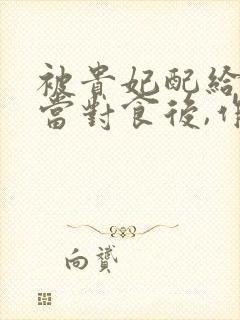 被貴妃配給
當對食後,作
向贇